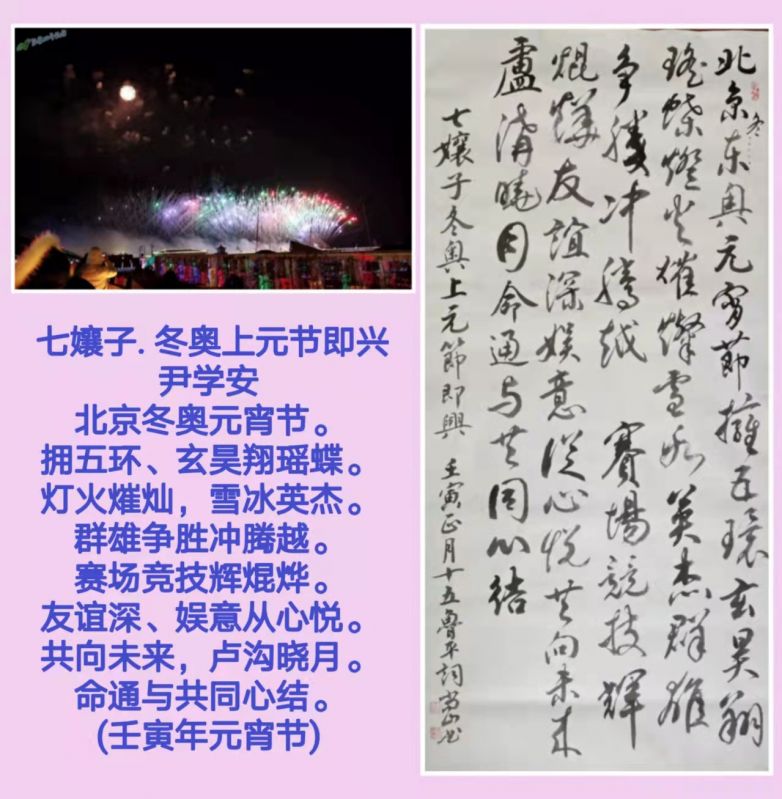 七孃子.冬奥上元节即兴
尹学安
北京冬奥元宵节。
拥五环、玄昊翔瑶蝶。
灯火熣灿，雪冰英杰。
群雄争胜冲腾越。
赛场竞技辉焜烨。
友谊深、娱意从心悦。
共向未来，卢沟晓月。
命通与共同心结。
(壬寅年元宵节)
北京东奥元宵節擁五環玄昊翔
冬
瑤蝶燈火熣燦雪冰英杰群雄
争勝冲騰越 賽場競技輝
焜燁友誼深娱意從心悦共向未来
盧溝曉月命通与共同心结
七孃子冬奥上元節即興 壬寅正月十五魯平詞